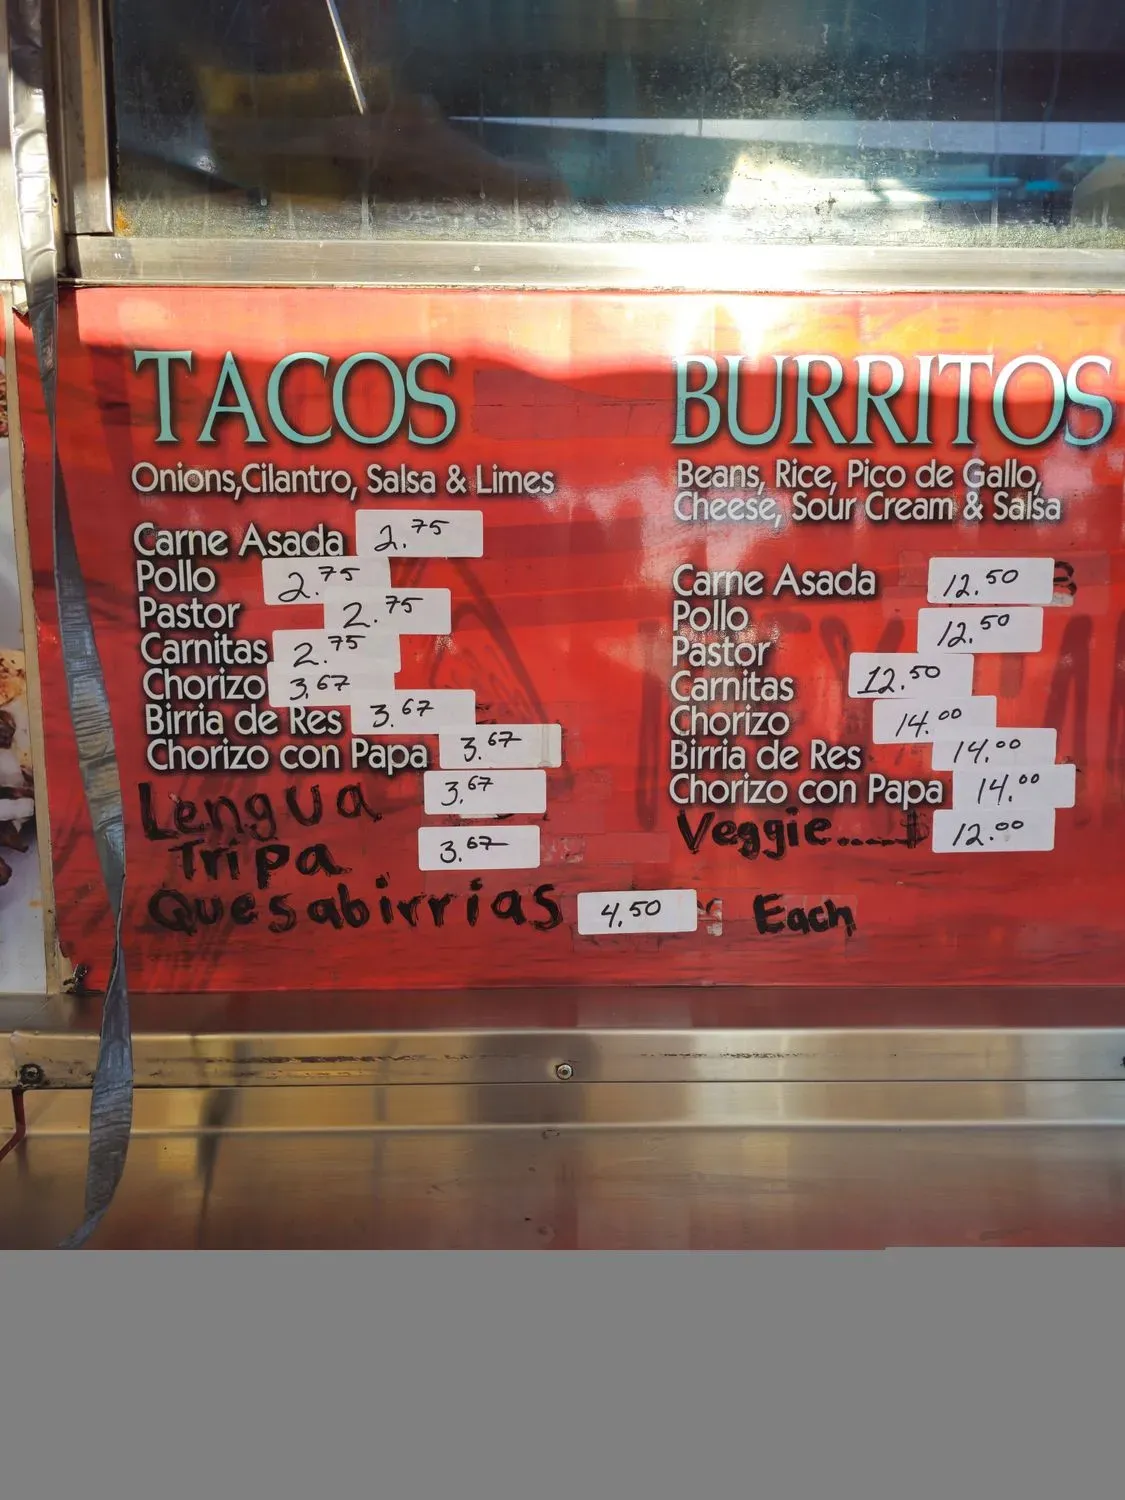 TACOS
Onions, Cilantro, Salsa & Limes
Carne Asada 2.75
Pollo 2.75
Pastor 2.75
Carnitas 2.75
Chorizo 3.67
Birria de Res 3.67
Chorizo con Papa 3.67
Lengua 3.67
Tripa 3.67
Quesabirrias 4.50 Each
BURRITOS
Beans, Rice, Pico de Gallo,
Cheese, Sour Cream & Salsa
Carne Asada 12.50
Pollo 12.50
Pastor
Carnitas 12.50
Chorizo 14.00
Birria de Res 14.00
Chorizo con Papa 14.00
Veggie.... 12.00